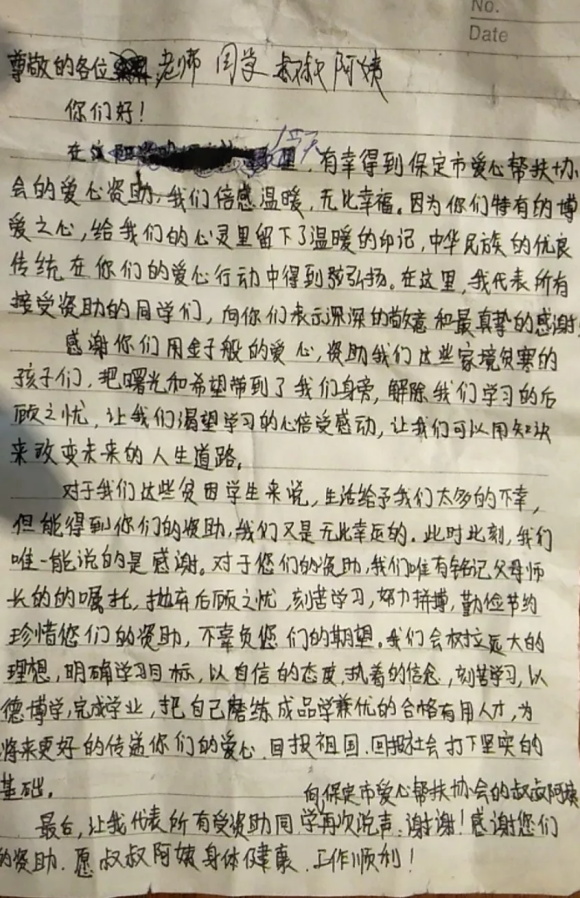 No.
Date
尊敬的各位 老师 同学 叔叔 阿姨
你们好!
今天 有幸得到保定市爱心帮扶协
会的爱心资助,我们倍感温暖,无比幸福。因为你们特有的博
爱之心,给我们的心灵里留下了温暖的印记,中华民族的优良
传统在你们的爱心行动中得到弘扬。在这里,我代表所有
接受资助的同学们,向你们表示深深的敬意和最真挚的感谢!
感谢你们用金子般的爱心,资助我们这些家境贫寒的
孩子们,把曙光和希望带到了我们身旁,解除我们学习的后
顾之忧,让我们渴望学习的心倍受感动,让我们可以用知识
来改变未来的人生道路。
对于我们这些贫困学生来说,生活给予我们太多的不幸,
但能得到你们的资助,我们又是无比幸运的.此时此刻,我们
唯一能说的是感谢。对于您们的资助,我们唯有铭记父母师
长的的嘱托,抛弃后顾之忧,刻苦学习,努力拼搏,勤俭节约
珍惜您们的资助,不辜负您们的期望。我们会树立远大的
理想,明确学习目标,以自信的态度,执着的信念,刻苦学习,以
德博学,完成学业,把自己磨练成品学兼优的合格有用人才,为
将来更好的传递你们的爱心.回报祖国.回报社会打下坚实的
基础。
向保定市爱心帮扶协会的叔叔阿姨
最后,让我代表所有受资助同学再次说声:谢谢!感谢您们
的资助.愿叔叔阿姨身体健康.工作顺利!